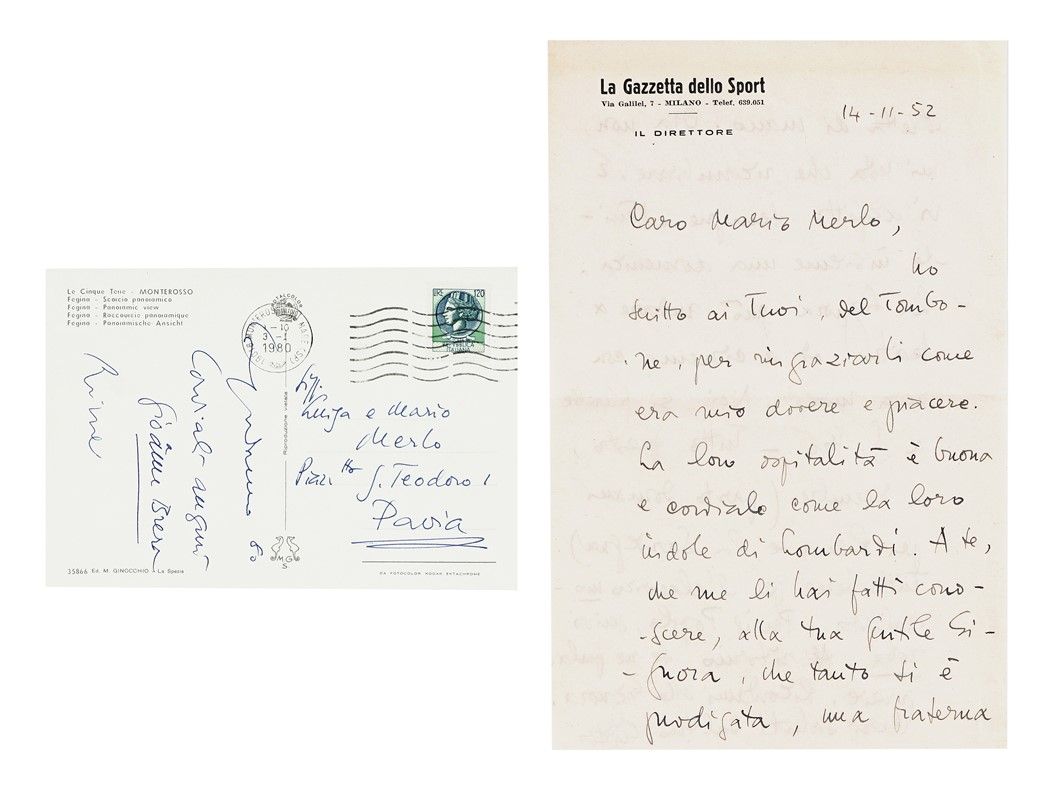 Le Cinque Terre - MONTEROSSO
Fegina - Scorcio panoramico
Fegina - Panoramic view
Fegina - Raccourcis panoramique
Fegina - Panoramische Ansicht
LIRE 120
REPUBBLICA ITALIANA
MONTEROSSO
1980
Cordiali auguri
Gioânn Brera
Rina
Riproduzione vietata
Luisa e Mario
Merlo
S. Teodoro 1
Pavia
M G
S
35866 Ed. M. GINOCCHIO - La Spezia
DA FOTOCOLOR KODAK EKTACHROME
La Gazzetta dello Sport
Via Galilei, 7 - MILANO - Telef. 639.051
IL DIRETTORE
14-11-52
Caro Mario Merlo,
ho
scritto ai Tuoi, del Tombo-
ne, per ringraziarli come
era mio dovere e piacere.
La loro ospitalità è buona
e cordiale come la loro
indole di Lombardi. A te,
che me li hai fatti cono-
scere, alla tua gentile Si-
gnora, che tanto si è
prodigata, una fraterna